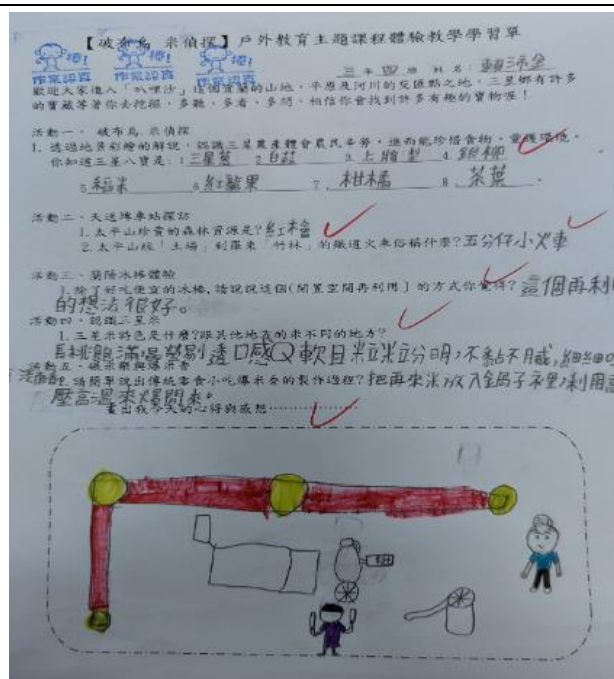 【破布烏 米偵探】戶外教育主題課程體驗教學學習單
棒! 棒! 棒!
作業認真 作業認真 作業認真
三年四班 姓名:
歡迎大家進入「叭哩沙」這個宜蘭的山地、平原及河川的交匯點之地,三星鄉有許多
的寶藏等著你去挖掘,多聽、多看、多問,相信你會找到許多有趣的寶物喔!
活動一、 破布烏 米偵探
1. 透過地景彩繪的解說,認識三星農產體會農民辛勞,進而能珍惜食物、愛護環境。
你知道三星八寶是:1 三星蔥 2 白蒜 3. 上將梨 4 銀柳
5 稻米 6 紅龍果 7. 柑橘 8. 茶葉。
活動二、天送埤車站探訪
1. 太平山珍貴的森林資源是?紅檜
2. 太平山經「土場」到羅東「竹林」的鐵道火車俗稱什麼?五分仔小火車
活動三、蘭陽冰棒體驗
1. 除了好吃便宜的冰棒,請說說這個(閒置空間再利用)的方式你覺得?這個再利
的想法很好。
活動四、認識三星米
1. 三星米特色是什麼?跟其他地方的米不同的地方?
長桃飽滿晶瑩剔透口感Q軟且粒粒分明,不黏不膩,細細
活動五、碾米廠與爆米香
2. 請簡單說出傳統零食小吃爆米香的製作過程?把再來米放入鍋子裡,利用高
壓高溫來爆開來。
畫出我今天的心得與感想……